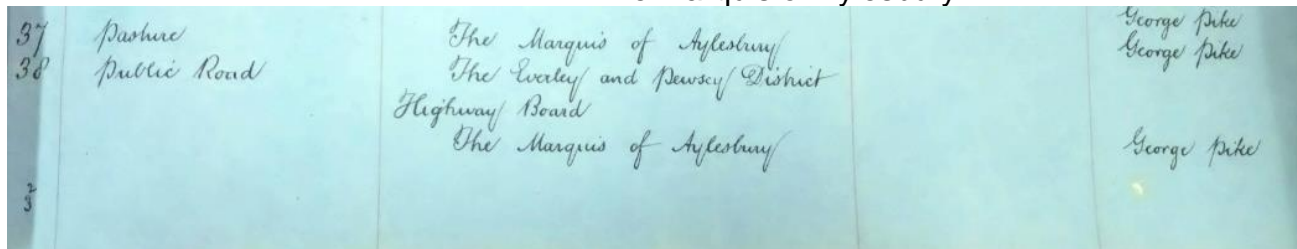 George Pike
37 Pasture The Marquis of Aylesbury George Pike
38 Public Road The Everley and Pewsey District
Highway Board
The Marquis of Aylesbury George Pike
2
3